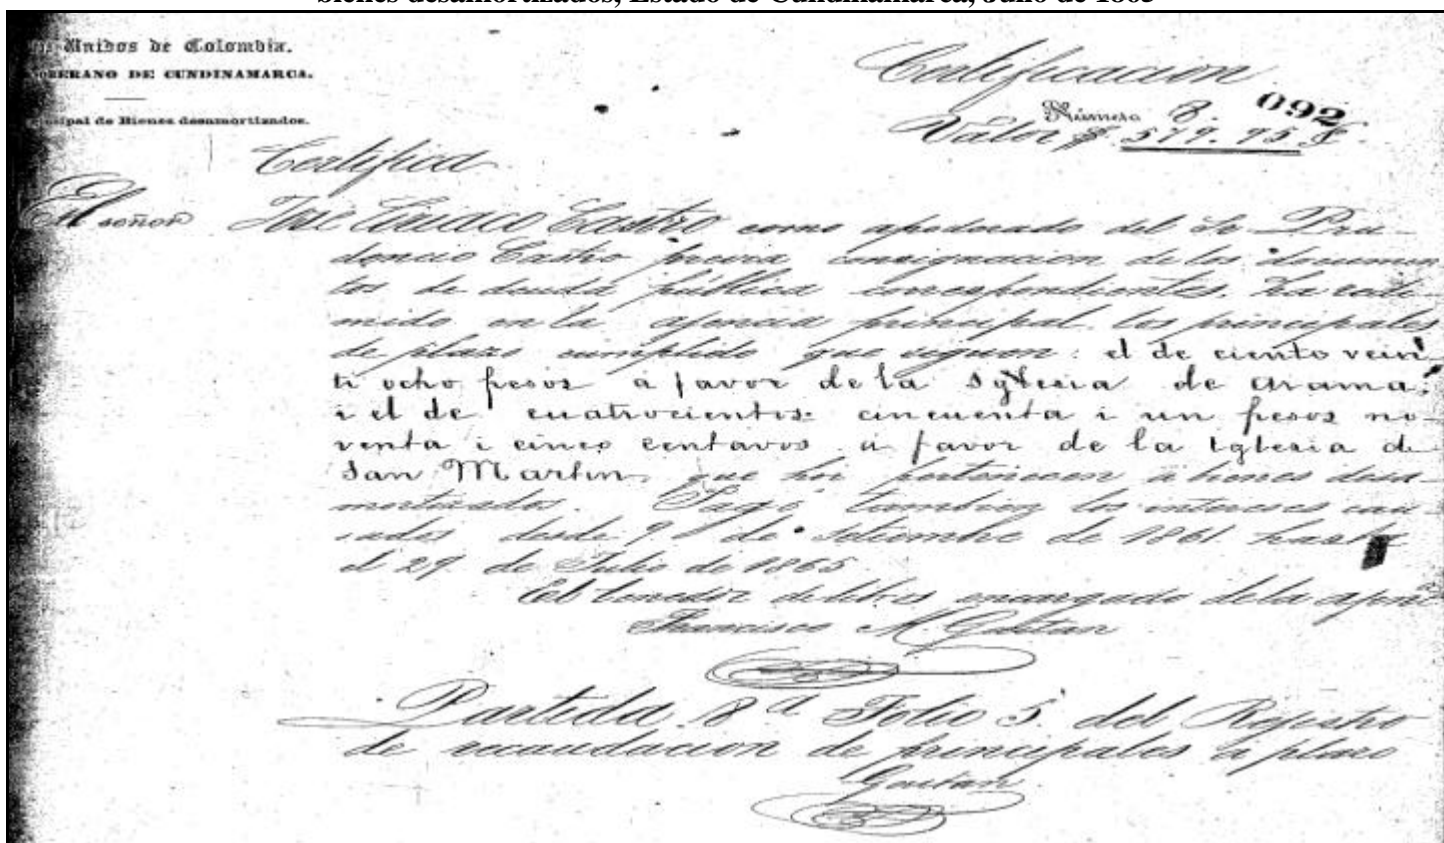 bienes desamortizados, Estado de Cundinamarca, Julio de 1865
Unidos de Colombia.
BERANO DE CUNDINAMARCA.
cipal de Bienes desamortizados.
Certificacion
Número 8. 092
Valor $ 579.95
Certifica
El señor José Ciriaco Castro como apoderado del Sr Pru-
dencio Castro previa consignacion de los documen
tos de deuda pública correspondientes, ha redi-
mido en la ajencia principal los principales
de plazo cumplido que siguen: el de ciento vein
ti ocho pesos a favor de la Yglesia de arama;
i el de cuatrocientos cincuenta i un pesos no-
venta i cinco centavos a favor de la Iglesia de
San Martin que hoi pertenecen a bienes desa-
mortizados. Pagó tambien los intereses cau-
sados desde 9 de Setiembre de 1861 hasta
el 29 de Julio de 1865
El tenedor de libros encargado de la ajena
Francisco M. Gaitan
Partida 8ª Folio 5 del Rejistro
de recaudacion de principales a plazo
Gaitan